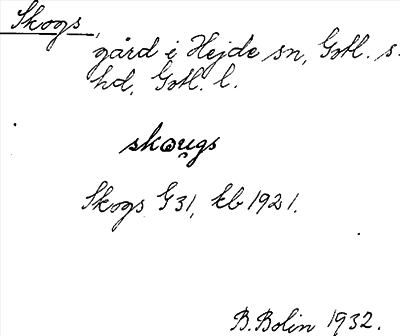 Skogs,
gård i Hejde sn, Gotl. s.
hd, Gotl. l.
skou̯gs
Skogs G31, kb 1921.
B. Bolin 1932.